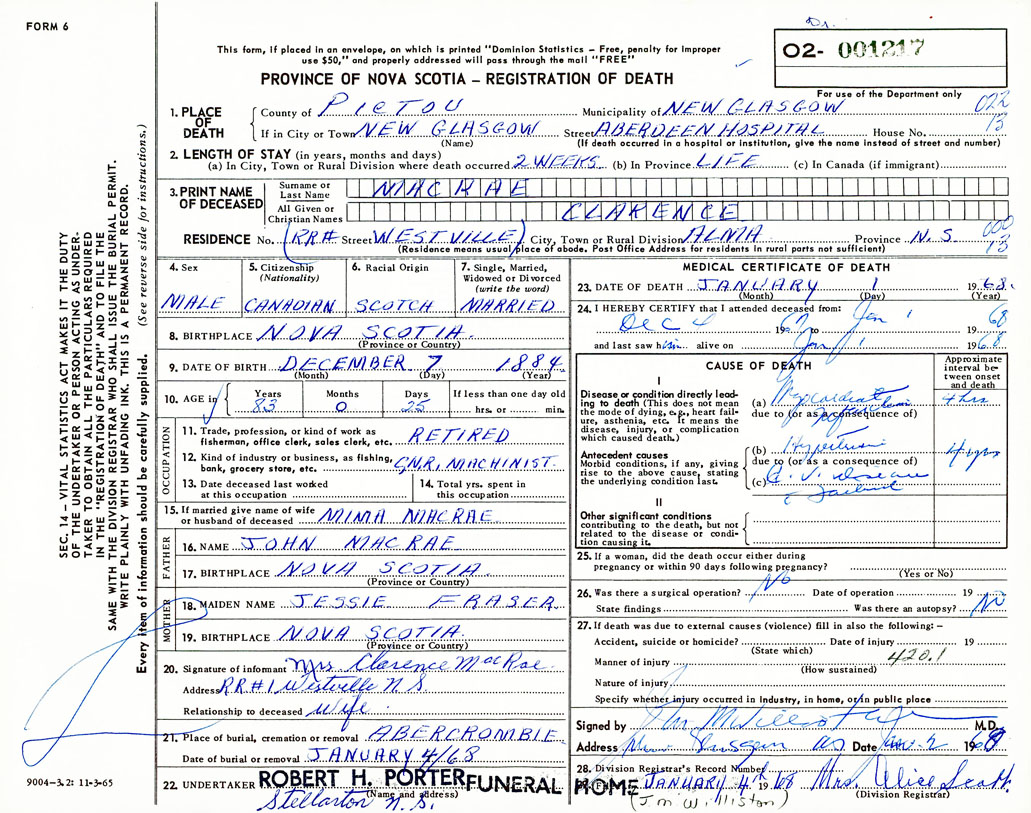 FORM 6
Dr.
O2- 001217
This form, if placed in an envelope, on which is printed "Dominion Statistics – Free, penalty for improper
use $50," and properly addressed will pass through the mail "FREE"
PROVINCE OF NOVA SCOTIA – REGISTRATION OF DEATH
For use of the Department only
022
13
1. PLACE OF DEATH
County of PICTOU Municipality of NEW GLASGOW
If in City or Town NEW GLASGOW Street ABERDEEN HOSPITAL House No.
(Name) (If death occurred in a hospital or institution, give the name instead of street and number)
2. LENGTH OF STAY (in years, months and days)
(a) In City, Town or Rural Division where death occurred 2 WEEKS (b) In Province LIFE (c) In Canada (if immigrant)
3. PRINT NAME OF DECEASED
Surname or Last Name MACRAE
All Given or Christian Names CLARENCE
RESIDENCE No. (RR# Street WESTVILLE) City, Town or Rural Division ALMA Province N.S.
(Residence means usual place of abode. Post Office Address for residents in rural parts not sufficient)
000
13
4. Sex
MALE
5. Citizenship
(Nationality)
CANADIAN
6. Racial Origin
SCOTCH
7. Single, Married,
Widowed or Divorced
(write the word)
MARRIED
8. BIRTHPLACE NOVA SCOTIA.
(Province or Country)
9. DATE OF BIRTH DECEMBER 7 1884
(Month) (Day) (Year)
10. AGE in
Years Months Days If less than one day old
83 0 25 hrs. or min.
OCCUPATION
11. Trade, profession, or kind of work as
fisherman, office clerk, sales clerk, etc. RETIRED
12. Kind of industry or business, as fishing,
bank, grocery store, etc. C.N.R. MACHINIST.
13. Date deceased last worked
at this occupation
14. Total yrs. spent in
this occupation
15. If married give name of wife
or husband of deceased MINA MACRAE
FATHER
16. NAME JOHN MACRAE
17. BIRTHPLACE NOVA SCOTIA.
(Province or Country)
MOTHER
18. MAIDEN NAME JESSIE FRASER
19. BIRTHPLACE NOVA SCOTIA.
(Province or Country)
20. Signature of informant Mrs. Clarence MacRae
Address RR#1 Westville N.S.
Relationship to deceased Wife
21. Place of burial, cremation or removal ABERCROMBIE
Date of burial or removal JANUARY 4/68
22. UNDERTAKER ROBERT H. PORTER FUNERAL HOME
(Name and address)
Stellarton N.S.
MEDICAL CERTIFICATE OF DEATH
23. DATE OF DEATH JANUARY 1 1968.
(Month) (Day) (Year)
24. I HEREBY CERTIFY that I attended deceased from:
Dec 4 1967 to Jan 1 1968
and last saw him alive on Jan 1 1968
CAUSE OF DEATH
Approximate
interval be-
tween onset
and death
I
Disease or condition directly lead-
ing to death (This does not mean
the mode of dying, e.g., heart fail-
ure, asthenia, etc. It means the
disease, injury, or complication
which caused death.)
(a) Myocardial 4 hrs
due to (or as a consequence of)
Antecedent causes
Morbid conditions, if any, giving
rise to the above cause, stating
the underlying condition last.
(b) Hypertension 4 yrs
due to (or as a consequence of)
(c) C.V. disease
II
Other significant conditions
contributing to the death, but not
related to the disease or condi-
tion causing it.
25. If a woman, did the death occur either during
pregnancy or within 90 days following pregnancy?
(Yes or No)
26. Was there a surgical operation? No Date of operation 19
State findings Was there an autopsy? No
27. If death was due to external causes (violence) fill in also the following: –
Accident, suicide or homicide? Date of injury 19
(State which)
Manner of injury 420.1
(How sustained)
Nature of injury
Specify whether injury occurred in industry, in home, or in public place
Signed by M.D.
Address New Glasgow NS Date Jan. 2 1968
28. Division Registrar's Record Number
JANUARY 4th 1968 Mrs. Alice Scott.
(Division Registrar)
(J.M. Williston)
SEC. 14 – VITAL STATISTICS ACT MAKES IT THE DUTY
OF THE UNDERTAKER OR PERSON ACTING AS UNDER-
TAKER TO OBTAIN ALL THE PARTICULARS REQUIRED
IN THE "REGISTRATION OF DEATH" AND TO FILE THE
SAME WITH THE DIVISION REGISTRAR WHO SHALL ISSUE THE BURIAL PERMIT.
WRITE PLAINLY WITH UNFADING INK. THIS IS A PERMANENT RECORD.
Every item of information should be carefully supplied. (See reverse side for instructions.)
9004-3.2: 11-3-65